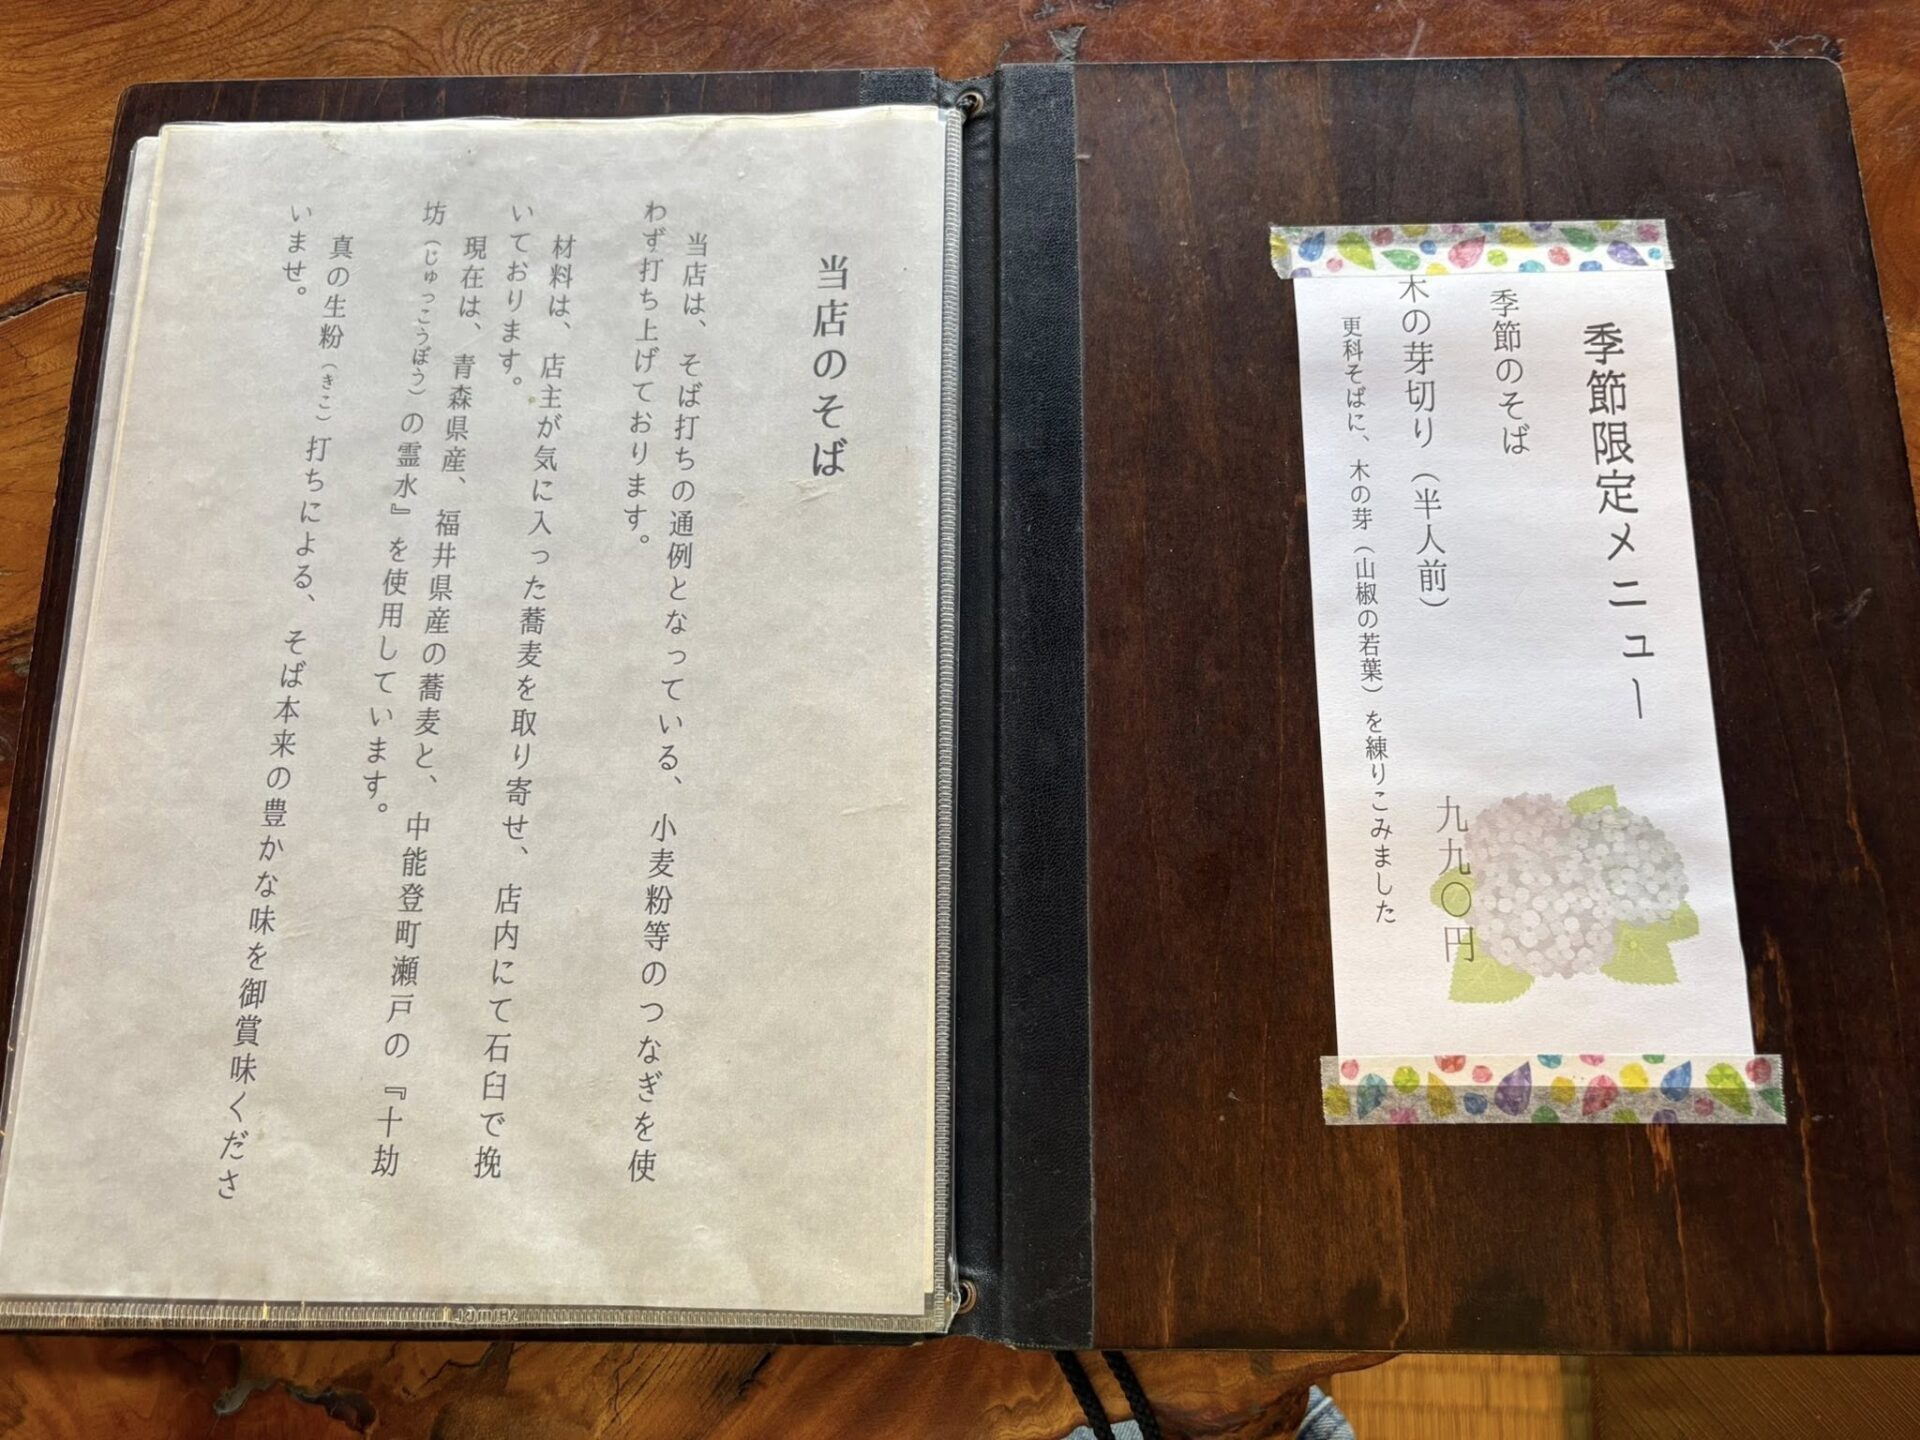 季節限定メニュー
季節のそば
木の芽切り（半人前）
九九〇円
更科そばに、木の芽（山椒の若葉）を練りこみました
当店のそば
当店は、そば打ちの通例となっている、小麦粉等のつなぎを使
わず打ち上げております。
材料は、店主が気に入った蕎麦を取り寄せ、店内にて石臼で挽
いております。
現在は、青森県産、福井県産の蕎麦と、中能登町瀬戸の『十劫
坊（じゅっこうぼう）の霊水』を使用しています。
真の生粉（きこ）打ちによる、そば本来の豊かな味を御賞味くださ
いませ。